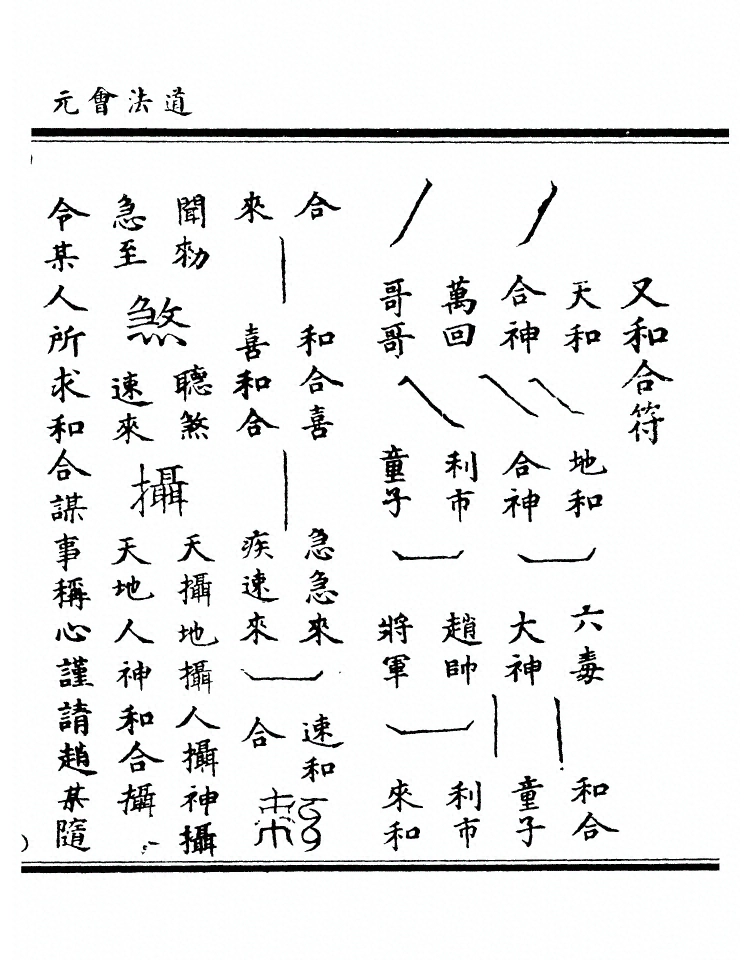 道法會元
又和合符
天和 地和 六毒 和合
合神 合神 大神 童子
萬回 利市 趙帥 利市
哥哥 童子 將軍 來和
合 和合喜 急急來 速和
來 喜和合 疾速來 合
聞勑 聽煞 天攝地攝人攝神攝
煞 攝
急至 速來 天地人神和合攝
令某人所求和合謀事稱心謹請趙某隨